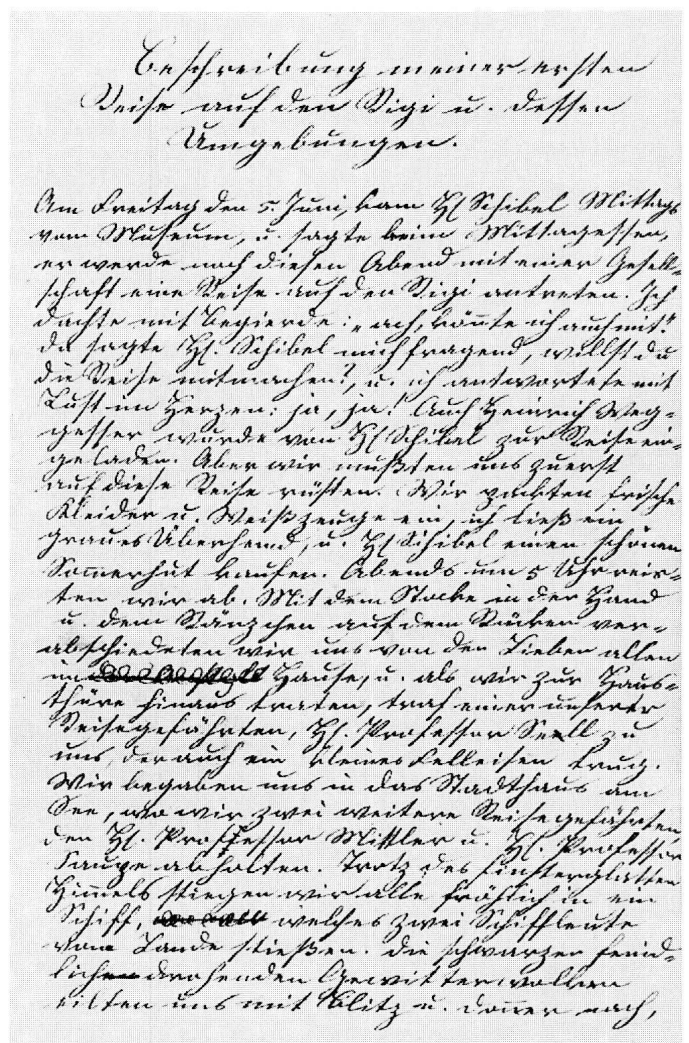 Beschreibung meiner ersten
Reise auf den Rigi u. dessen
Umgebungen.
Am Freitag den 5. Juni, kam H. Schibel Mittags
vom Museum, u. sagte beim Mittagessen,
er werde noch diesen Abend mit einer Gesell-
schaft eine Reise auf den Rigi antreten. Ich
dachte mit Begierde: „ach, könnte ich auch mit!"
da sagte H. Schibel mich fragend, willst du
die Reise mitmachen?, u. ich antwortete mit
Lust im Herzen: ja, ja! Auch Heinrich Weg-
gesser wurde von H. Schibel zur Reise ein-
geladen. Aber wir mußten uns zuerst
auf diese Reise rüsten. Wir packten frische
Kleider u. Weißzeuge ein, ich ließ ein
graues Überhemd, u. H. Schibel einen schönen
Som̅erhut kaufen. Abends um 5 Uhr reis-
ten wir ab. Mit dem Stocke in der Hand
u. dem Ränzchen auf dem Rücken ver-
abschiedeten wir uns von den Lieben allen
im Hause, u. als wir zur Haus-
thüre hinaus traten, traf einer unserer
Reisegefährten, H. Professor zu
uns, der auch ein kleines Felleisen trug.
Wir begaben uns in das Stadthaus am
See, wo wir zwei weitere Reisegefährten
den H. Professor Mittler u. H. Professor
abholten. Trotz des
Him̅els stiegen wir alle fröhlich in ein
Schiff, welches zwei Schiffleute
vom Lande stießen. die schwarzen feind-
lich drohenden Gewitterwolken
eilten uns mit Blitz u. Don̅er nach,